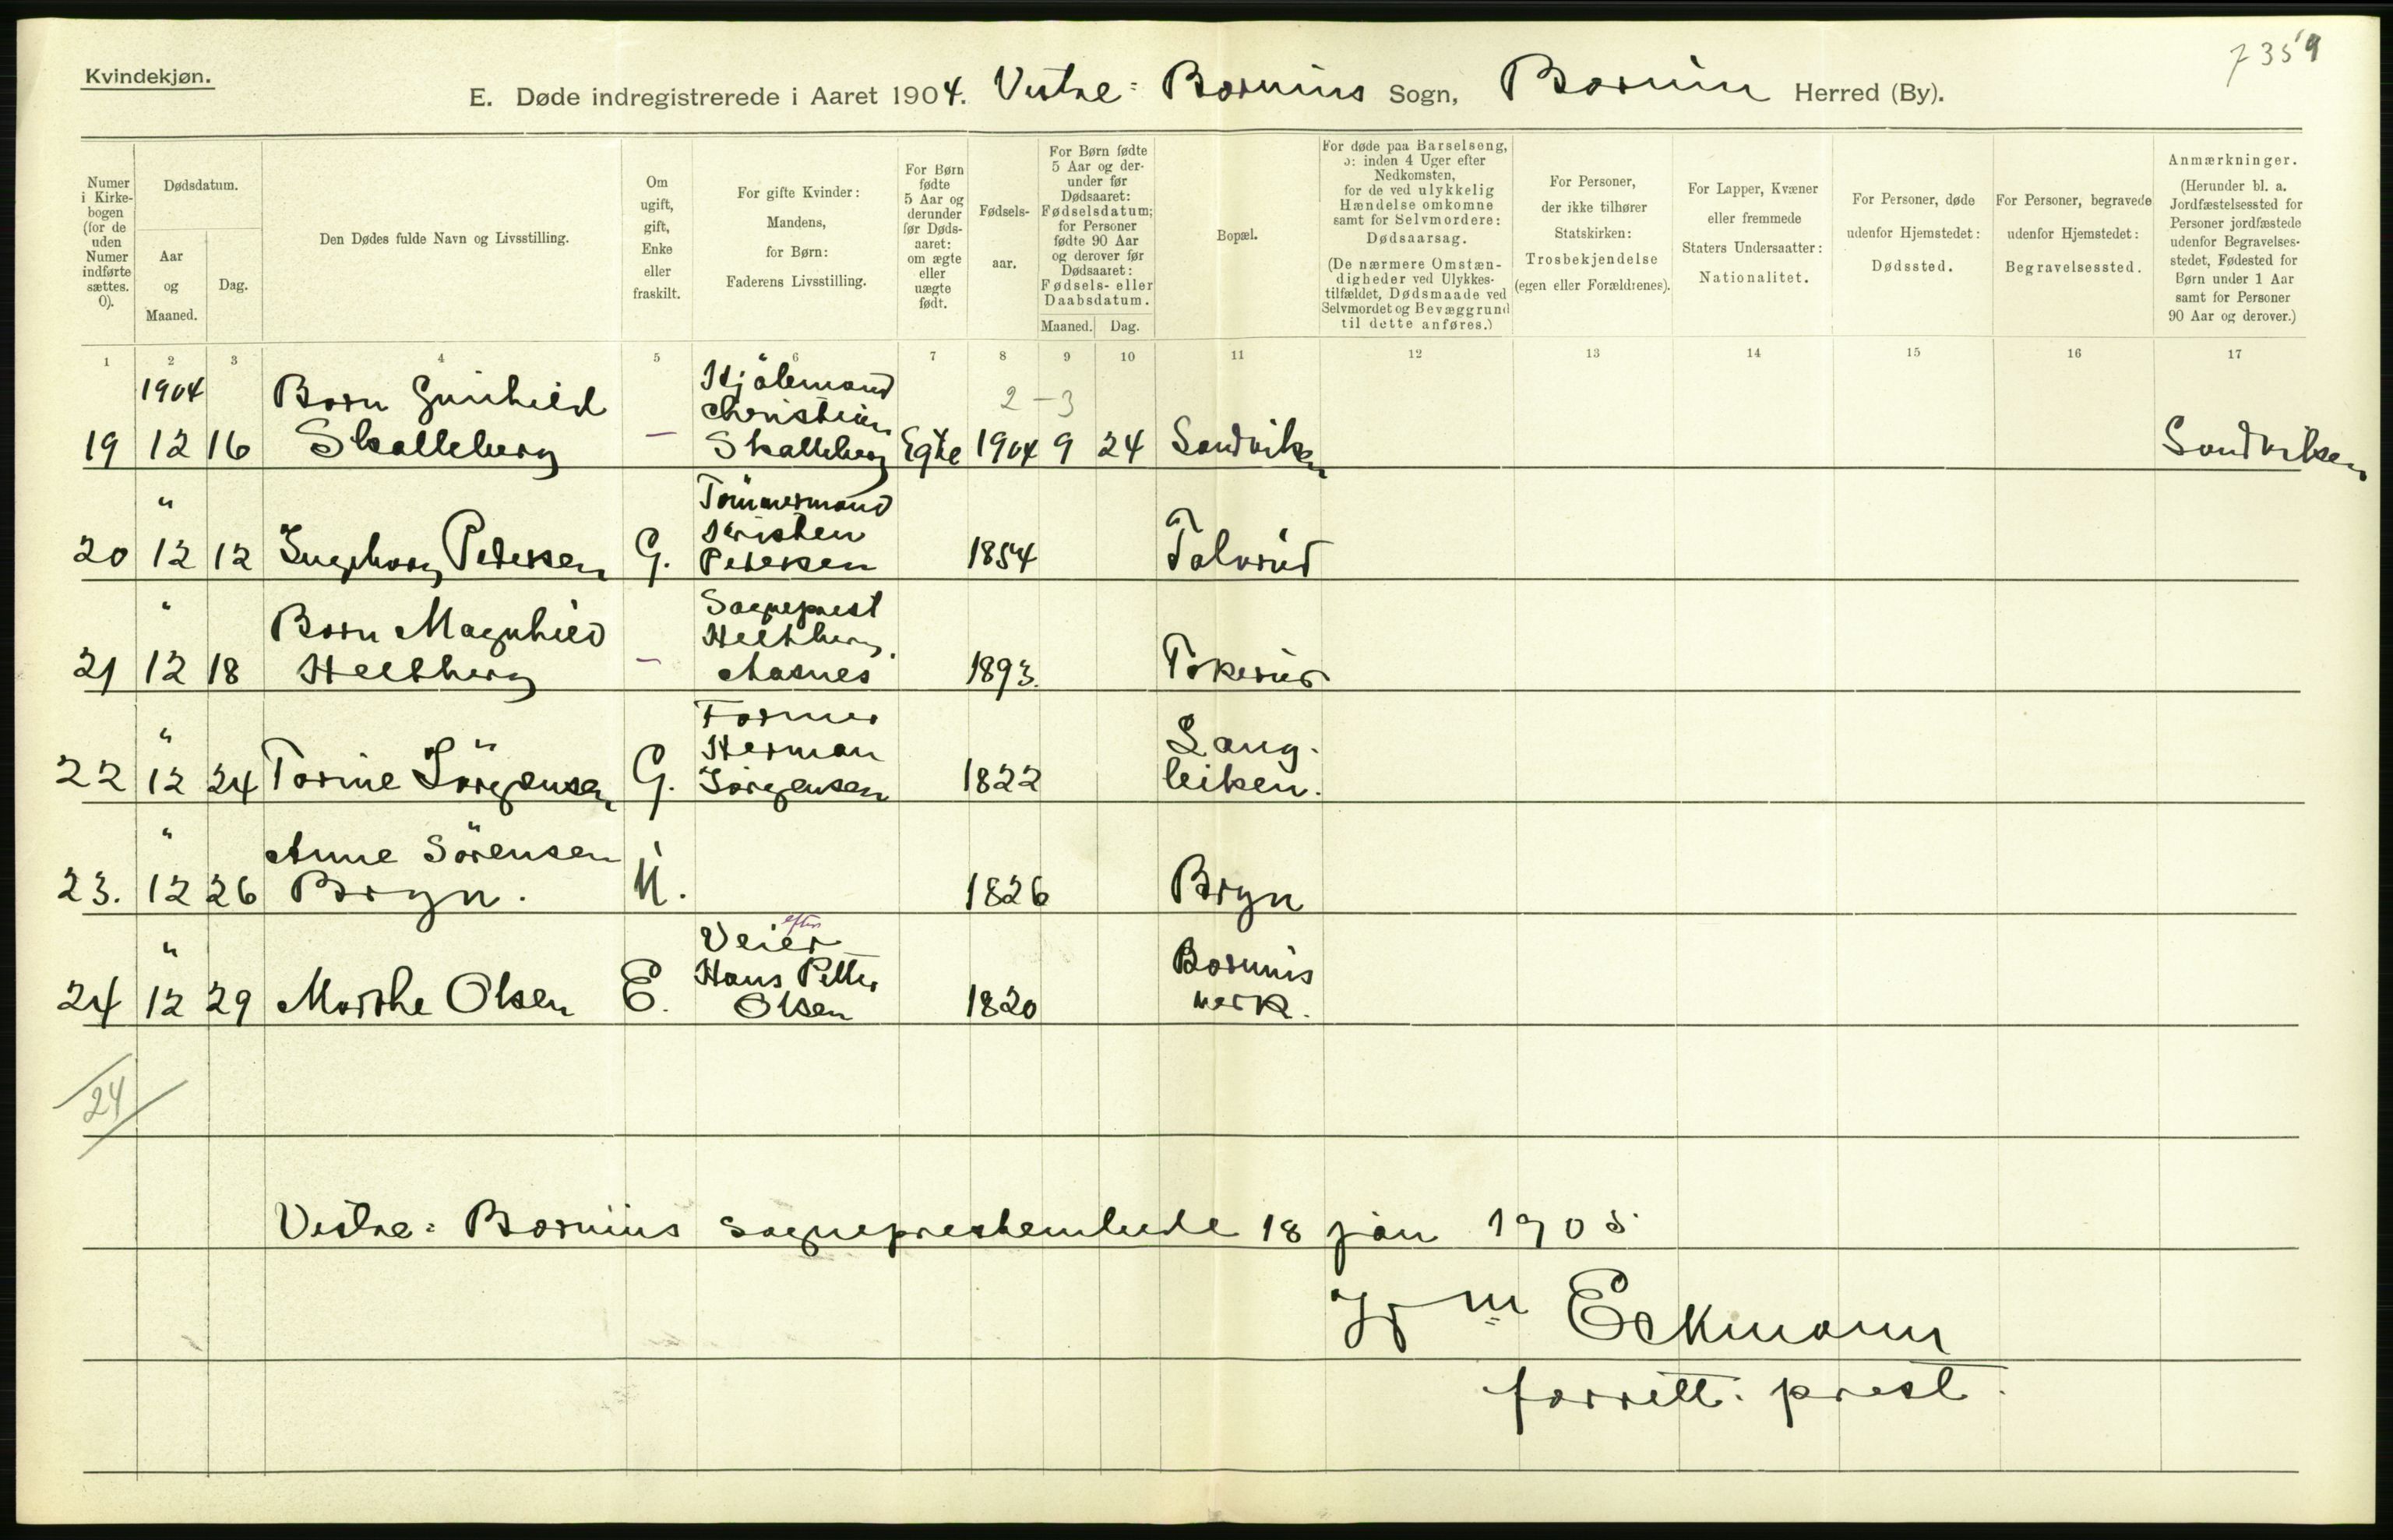 7359
Kvindekjøn.
E. Døde indregistrerede i Aaret 1904. Vestre= Bærums Sogn, Bærum Herred (By).
Numer i Kirke-bogen (for de uden Numer indførte sættes. 0).
Dødsdatum.
Aar og Maaned.
Dag.
Den Dødes fulde Navn og Livsstilling.
Om ugift, gift, Enke eller fraskilt.
For gifte Kvinder: Mandens, for Børn: Faderens Livsstilling.
For Børn fødte 5 Aar og derunder før Døds-aaret: om ægte eller uægte født.
Fødsels-aar.
For Børn fødte 5 Aar og der-under før Dødsaaret: Fødselsdatum; for Personer fødte 90 Aar og derover før Dødsaaret: Fødsels- eller Daabsdatum.
Maaned. Dag.
Bopæl.
For døde paa Barselseng, ɔ: inden 4 Uger efter Nedkomsten, for de ved ulykkelig Hændelse omkomne samt for Selvmordere: Dødsaarsag. (De nærmere Omstæn-digheder ved Ulykkes-tilfældet, Dødsmaade ved Selvmordet og Bevæggrund til dette anføres.)
For Personer, der ikke tilhører Statskirken: Trosbekjendelse (egen eller Forældrenes).
For Lapper, Kvæner eller fremmede Staters Undersaatter: Nationalitet.
For Personer, døde udenfor Hjemstedet: Dødssted.
For Personer, begravede udenfor Hjemstedet: Begravelsessted.
Anmærkninger. (Herunder bl. a. Jordfæstelsessted for Personer jordfæstede udenfor Begravelses-stedet, Fødested for Børn under 1 Aar samt for Personer 90 Aar og derover.)
1 2 3 4 5 6 7 8 9 10 11 12 13 14 15 16 17
1904 Barn Gunhild Christian 2-3
19 12 16 Skalleberg — Skalleberg Egte 1904 9 24 Sandviken Sandviken
" Tömmermand Kristen
20 12 12 Ingeborg Pedersen G. Petersen 1854 Talvrud
" Barn Magnhild Sogneprest Heltberg.
21 12 18 Heltberg — Aasnes 1893. Tokerud
" Former Herman Lang-
22 12 24 Torine Jörgensen G. Jörgensen 1822 leiken.
" Anne Sörensen
23. 12 26 Bryn. U. 1826 Bryn
" Veier efter Hans Petter Bærums
24 12 29 Marthe Olsen E. Olsen 1820 verk.
24
Vestre= Bærums sogneprestembede 18 jan 1905
Eckmann
forrett. prest.